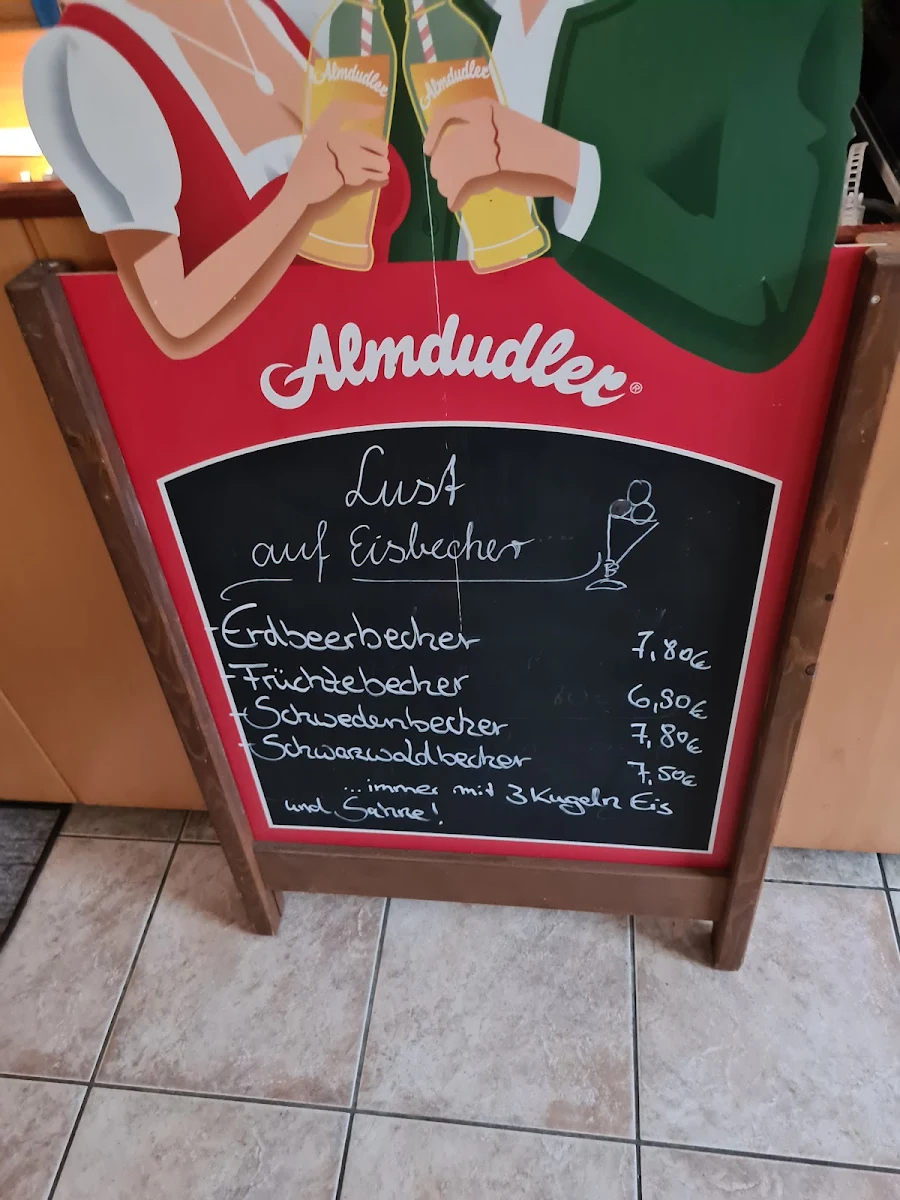 Almdudler Almdudler
Almdudler®
Lust
auf Eisbecher
- Erdbeerbecher 7,80€
- Früchtebecher 6,80€
- Schwedenbecher 7,80€
- Schwarzwaldbecher 7,50€
...immer mit 3 Kugeln Eis
und Sahne!